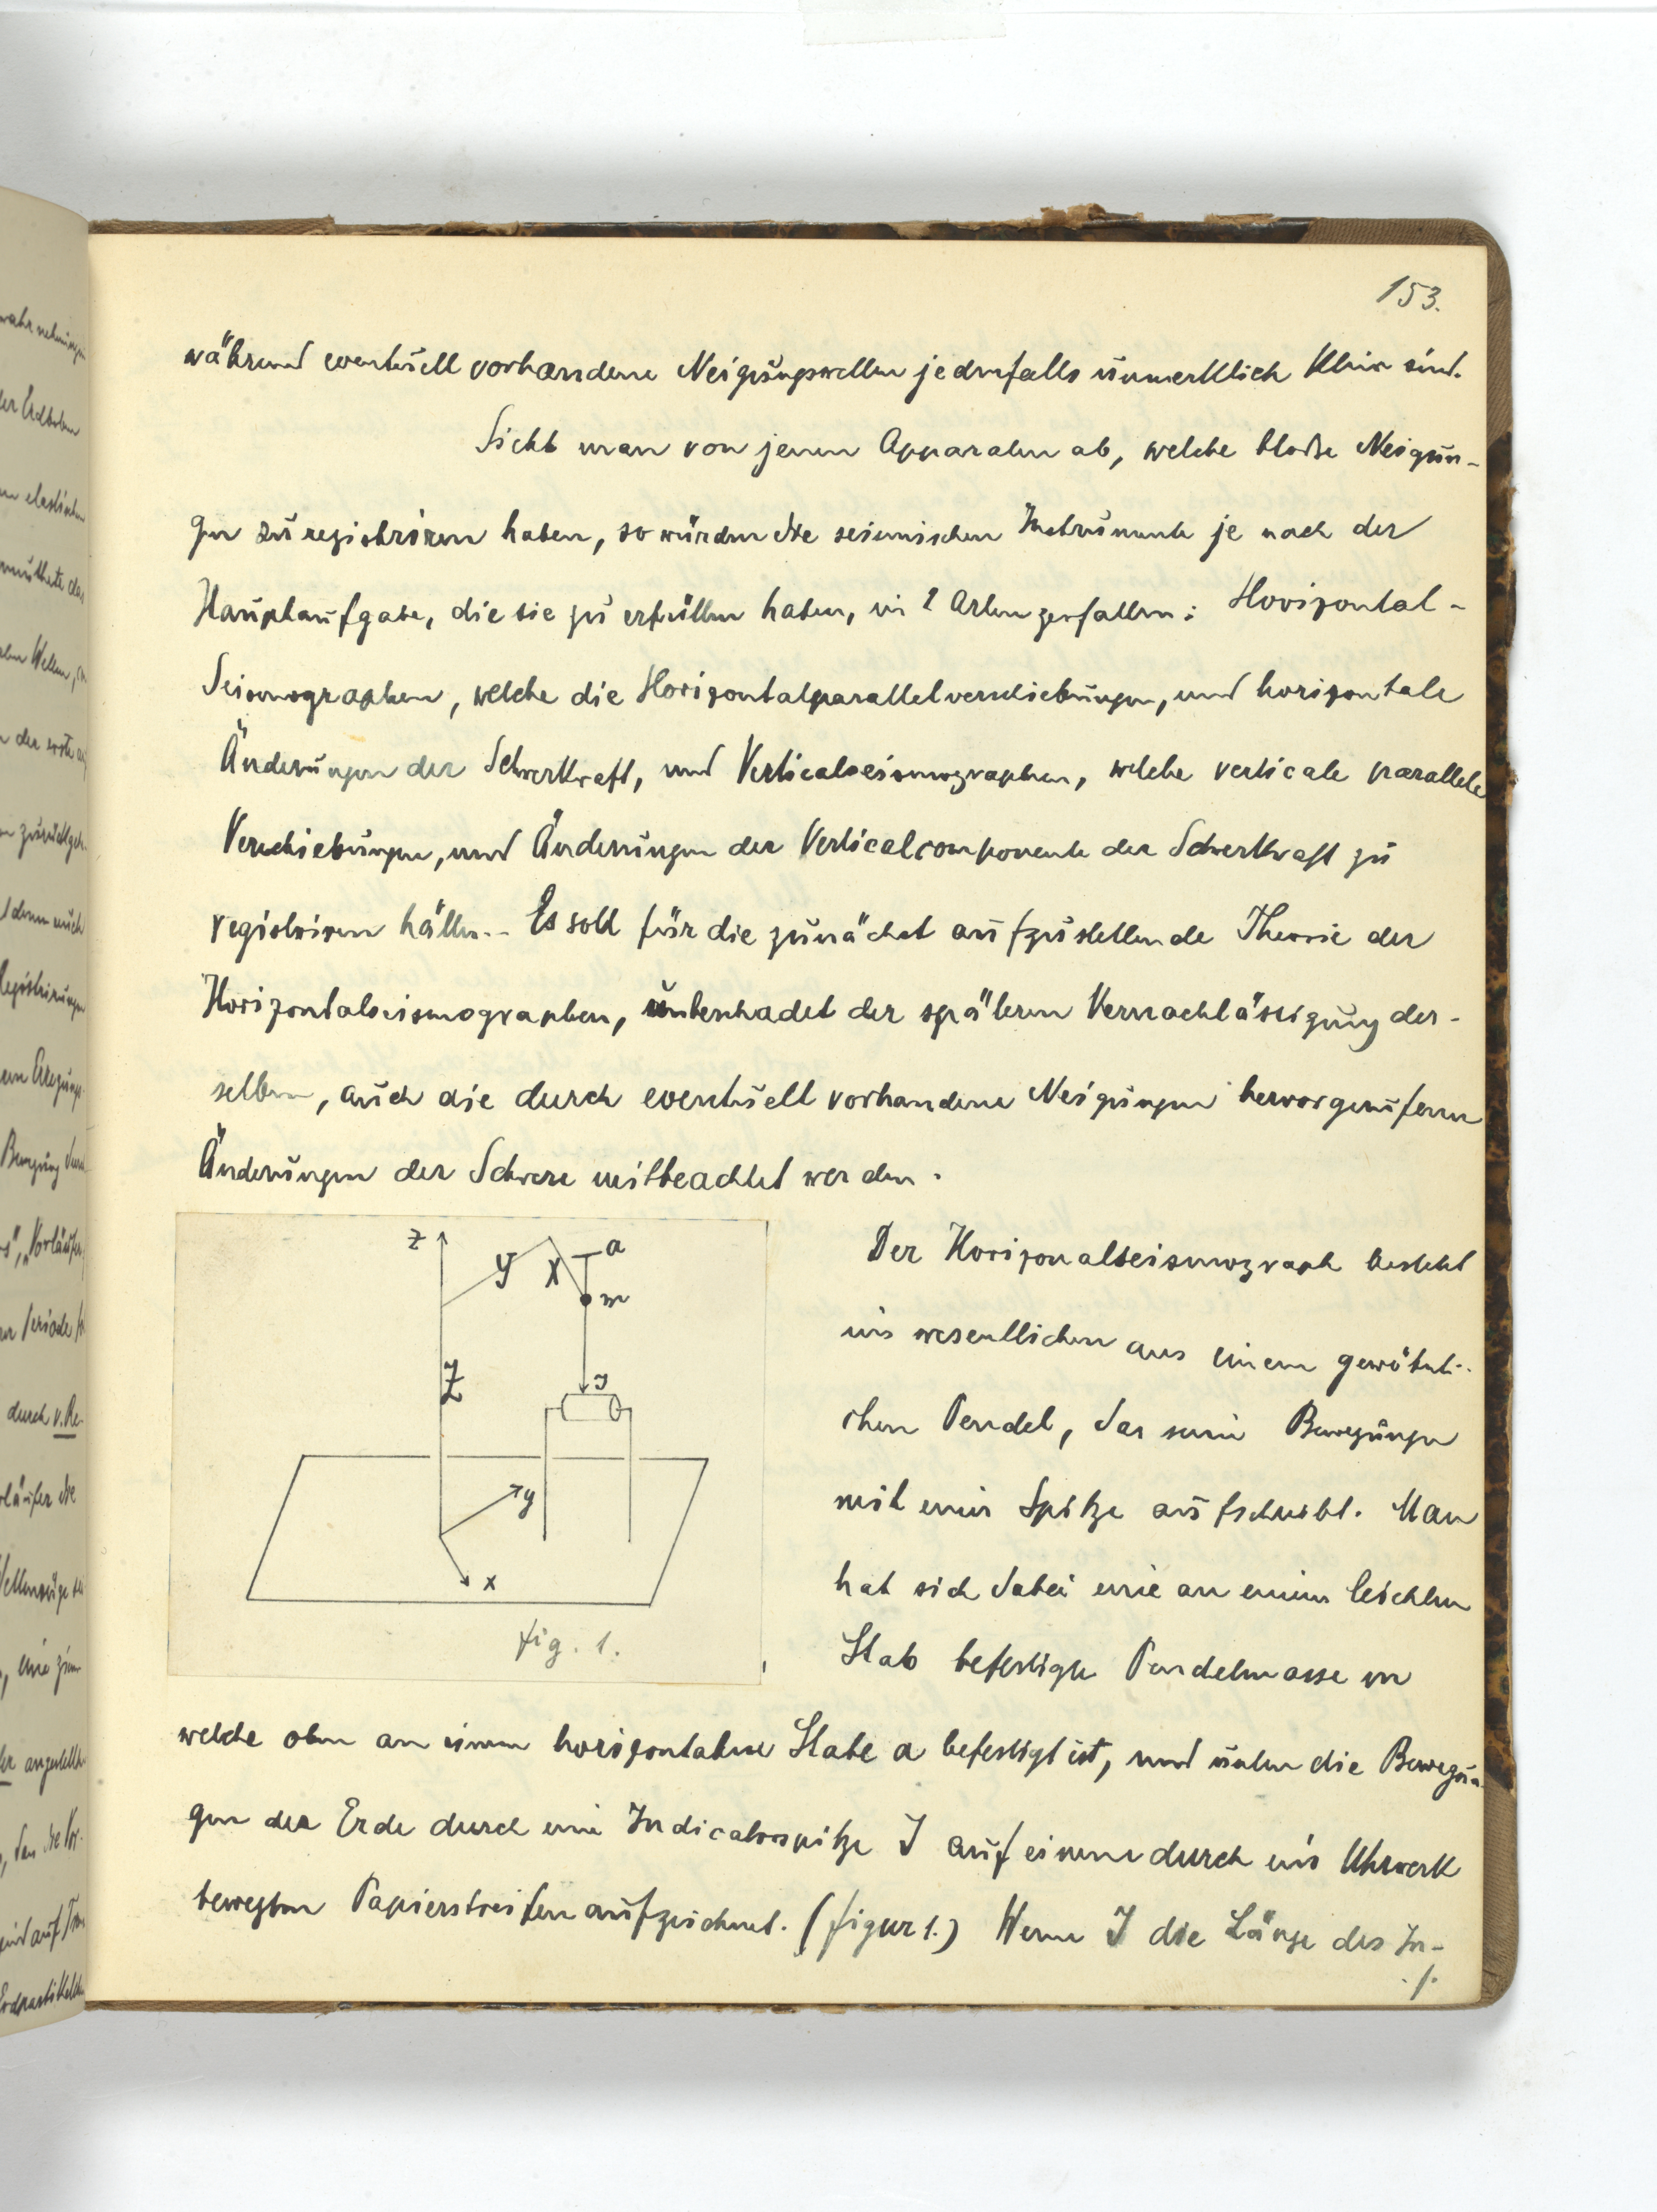 153.
während eventuell vorhandene Neigungswellen jedenfalls unmerklich klein sind.
Sieht man von jenen Apparaten ab, welche bloße Neigun-
gen zu registriren haben, so würden die seismischen Instrumente je nach der
Hauptaufgabe, die sie zu erfüllen haben, in 2 Arten zerfallen: Horizontal-
Seismographen, welche die Horizontalparallelverschiebungen, und horizontale
Änderungen der Schwerkraft, und Verticalseismographen, welche verticale parallele
Verschiebungen, und Änderungen der Verticalcomponente der Schwerkraft zu
registriren hätten. Es soll für die zunächst aufzustellende Theorie der
Horizontalseismographen, unbeschadet der späteren Vernachlässigung der-
selben, auch die durch eventuell vorhandene Neigungen hervorgerufenen
Änderungen der Schwere mitbeachtet werden.
z
y
X
a
m
J
Z
y
x
fig. 1.
Der Horizonalseismograph besteht
im wesentlichen aus einem gewöhnli-
chen Pendel, das seine Bewegungen
mit einer Spitze aufschreibt. Man
hat sich dabei eine an einem leichten
Stab befestigte Pendelmasse m
welche oben an einem horizontalen Stabe a befestigt ist, und unten die Bewegun-
gen der Erde durch eine Indicatorspitze J auf einem durch ein Uhrwerk
bewegten Papierstreifen aufzeichnet. (figur 1.) Wenn J die Länge des In-
./.
wahrnehmungen
der Erdboden
elastischen
Wellen,
der erste
Registrirungen
"Vorläufer
Periode
durch v. Re-
angestellt
Erdpartikelchen